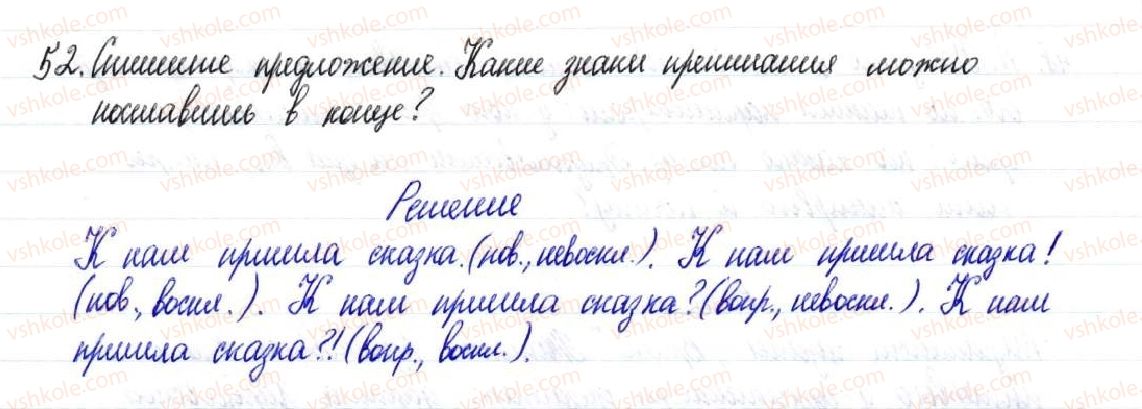 52. Спишите предложение. Какие знаки препинания можно
поставить в конце?
Решение
К нам пришла сказка. (пов., невоскл.). К нам пришла сказка!
(пов., воскл.). К нам пришла сказка? (вопр., невоскл.). К нам
пришла сказка?! (вопр., воскл.).